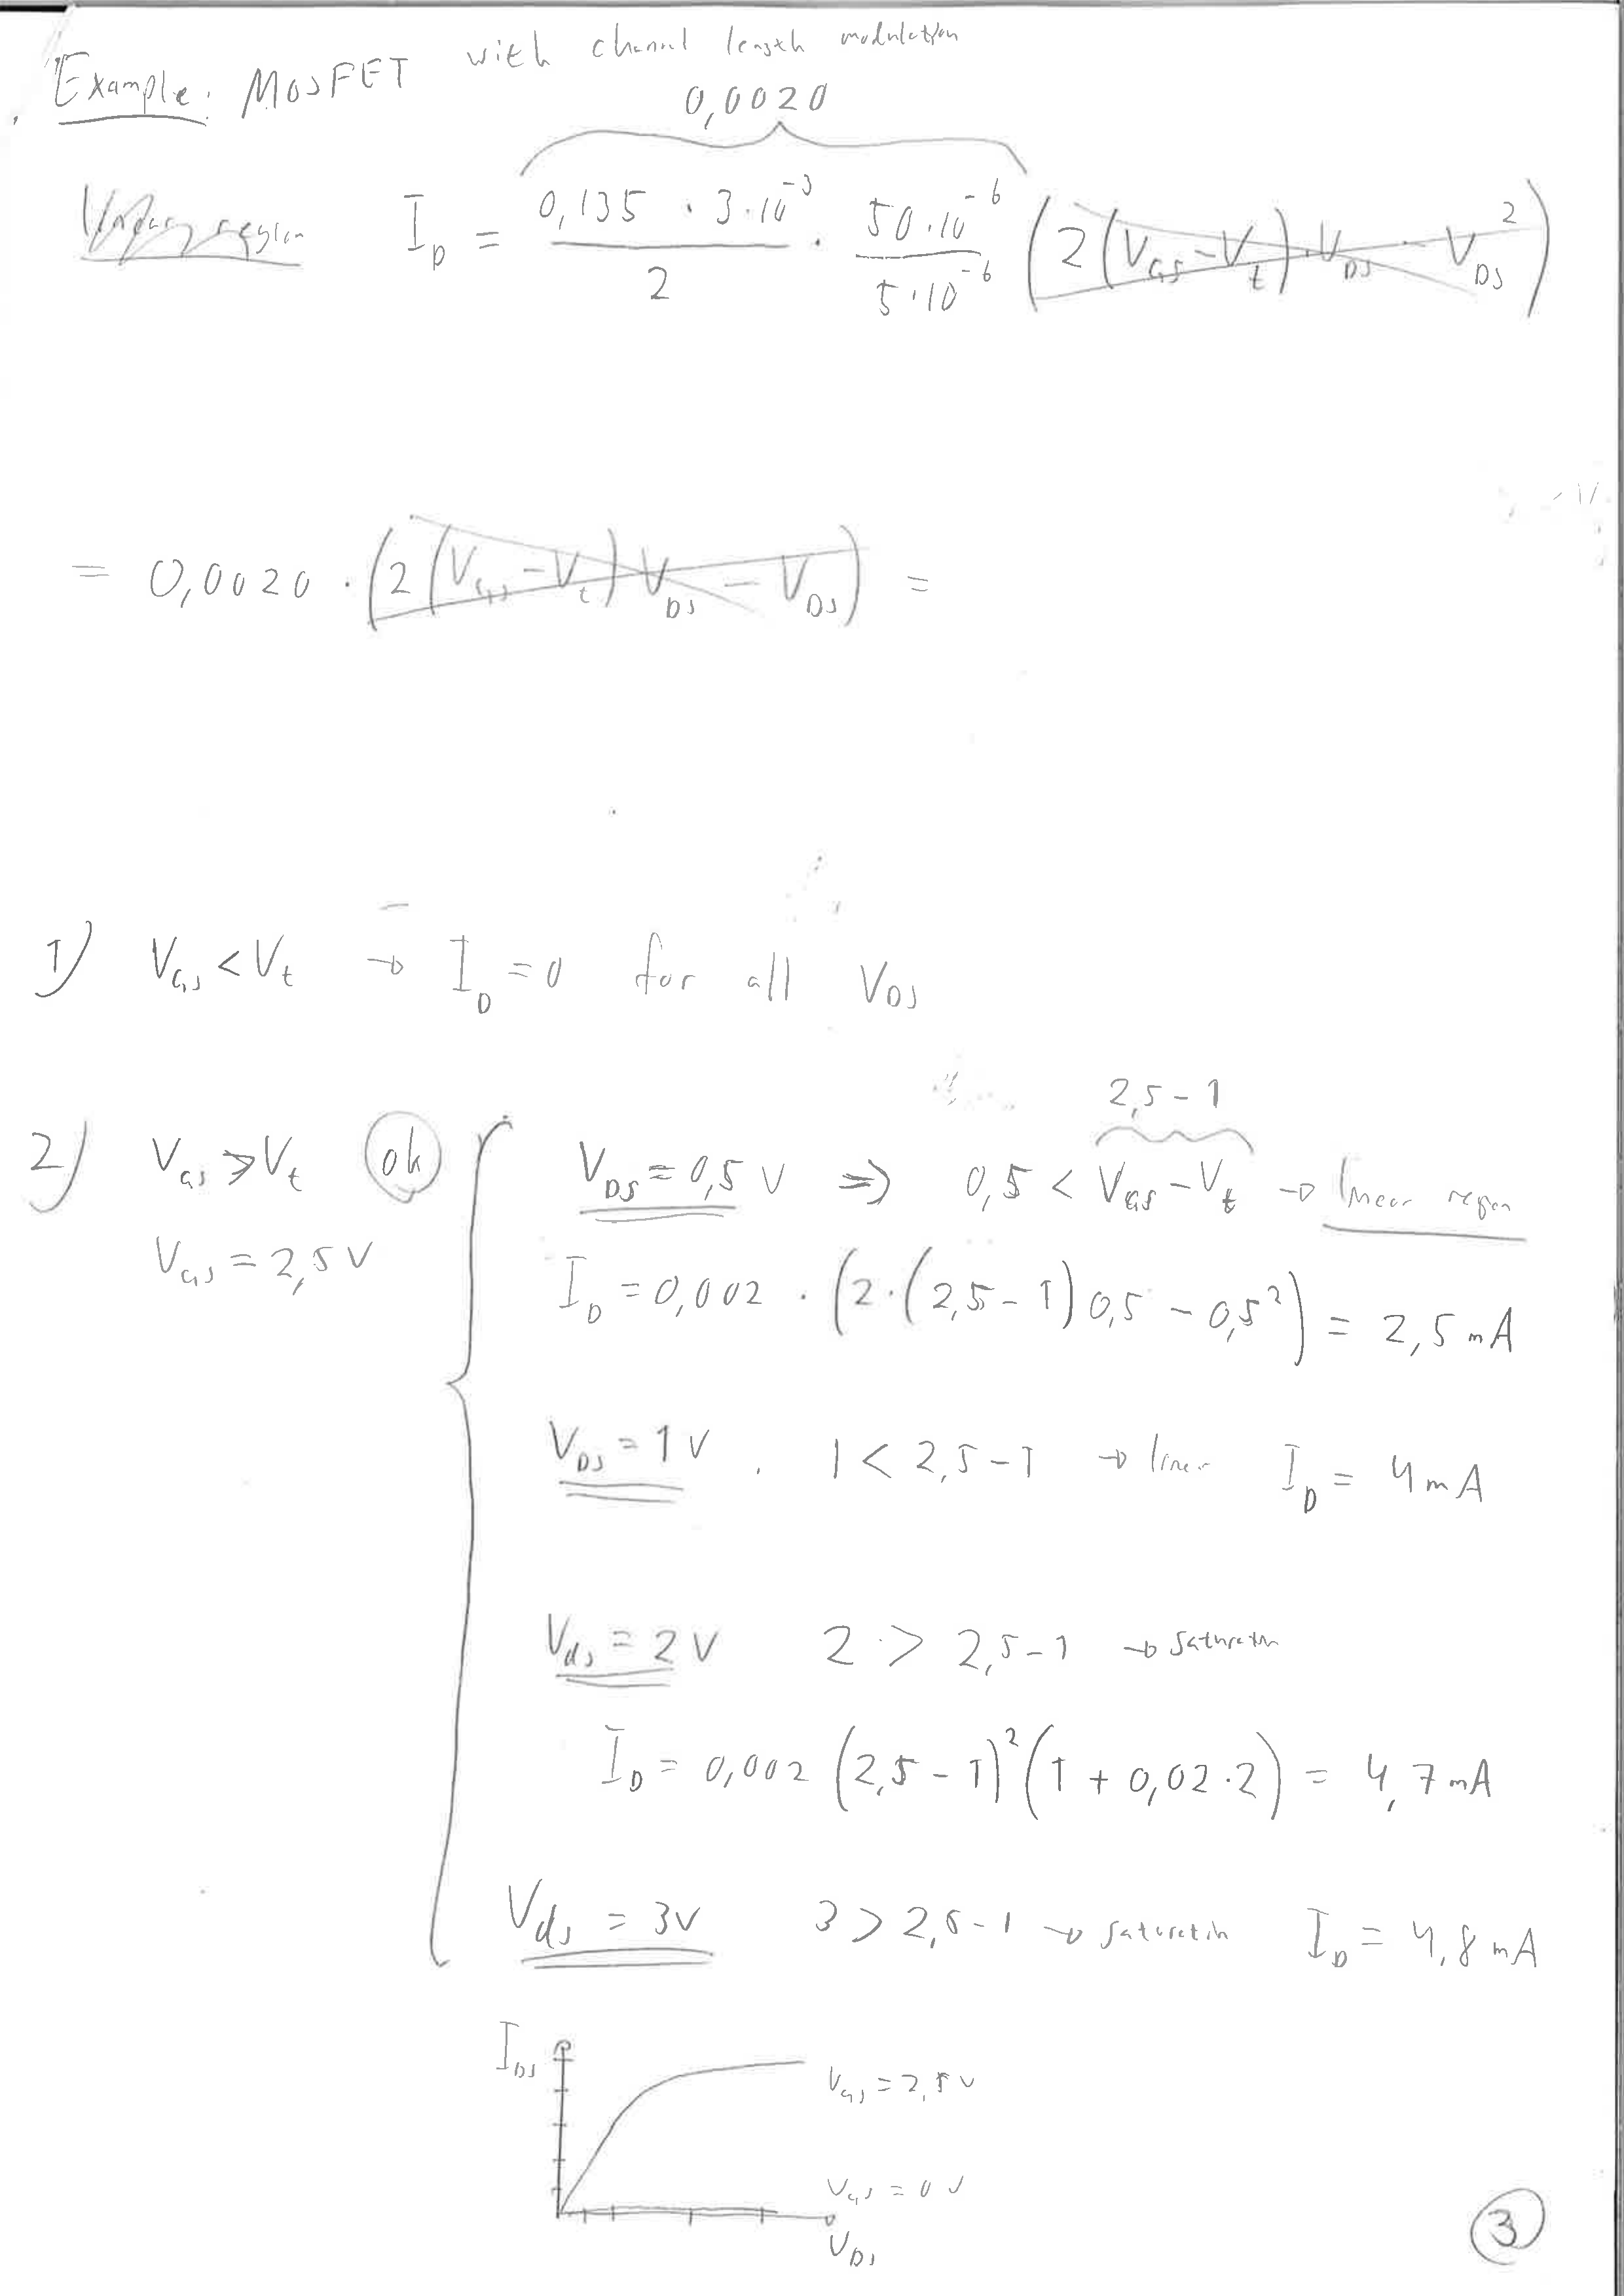 Example: MOSFET with channel length modulation
0,0020
I_D = 0,135 · 3·10^-3 / 2 · 50·10^-6 / 5·10^-6 (2(V_GS - V_t)·V_DS - V_DS^2)
= 0,0020 · (2(V_GS - V_t) V_DS - V_DS) =
1) V_GS < V_t → I_D = 0 for all V_DS
2,5 - 1
2) V_GS ≥ V_t ok V_DS = 0,5 V ⇒ 0,5 < V_GS - V_t → linear region
V_GS = 2,5 V
I_D = 0,002 · (2·(2,5 - 1) 0,5 - 0,5^2) = 2,5 mA
V_DS = 1 V . 1 < 2,5 - 1 → linear I_D = 4 mA
V_ds = 2 V 2 > 2,5 - 1 → saturation
I_D = 0,002 (2,5 - 1)^2 (1 + 0,02·2) = 4,7 mA
V_ds = 3 V 3 > 2,5 - 1 → saturation I_D = 4,8 mA
I_DS
V_GS = 2,5 V
V_GS = 0 V
V_DS
3